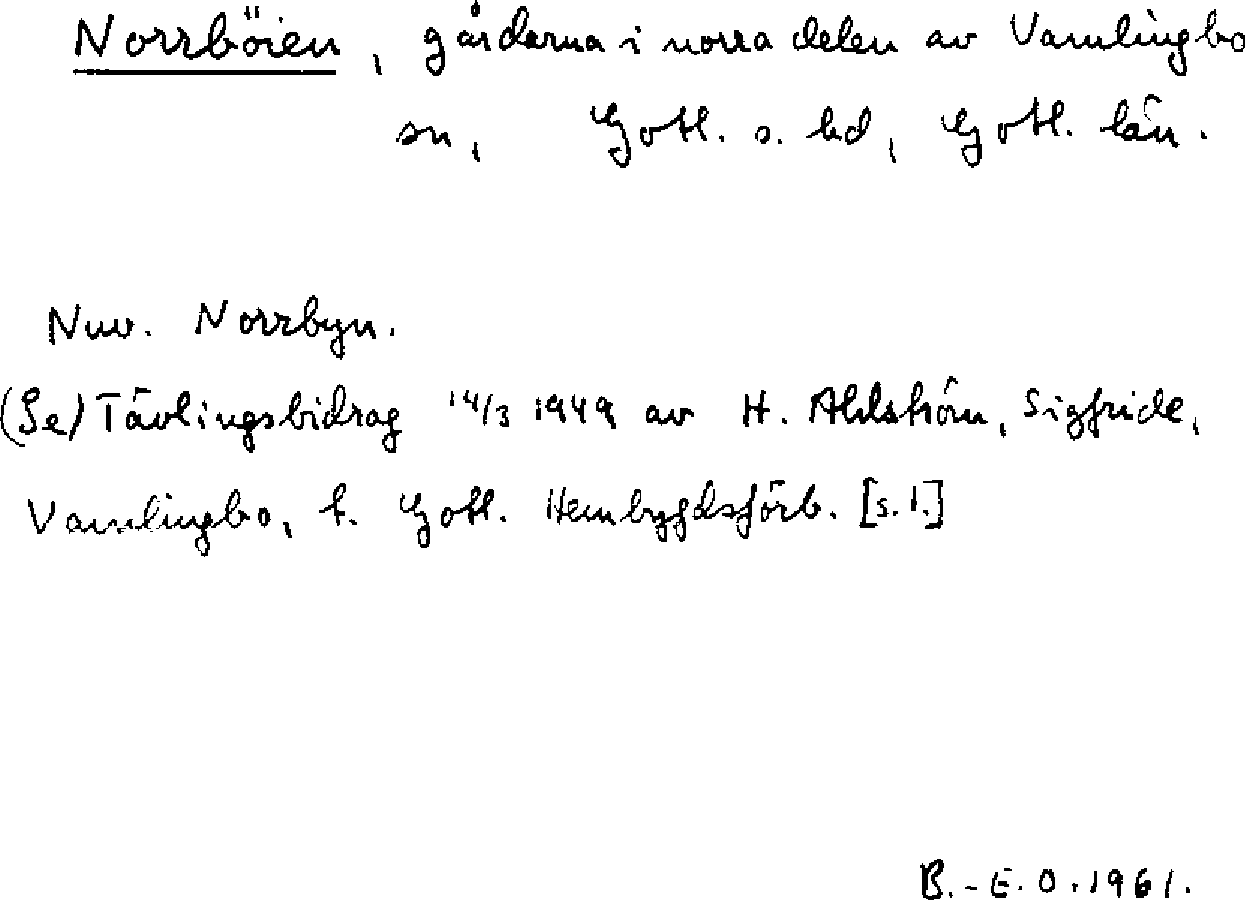 Norrböien, gårdarna i norra delen av Vamlingbo
sn, Gotl. s. hd, Gotl. län.
Nuv. Norrbyn.
(Se) Tävlingsbidrag 14/3 1949 av H. Ahlström, Sigfride,
Vamlingbo, t. Gotl. Hembygdsförb. [s. 1.]
B.-E.O. 1961.